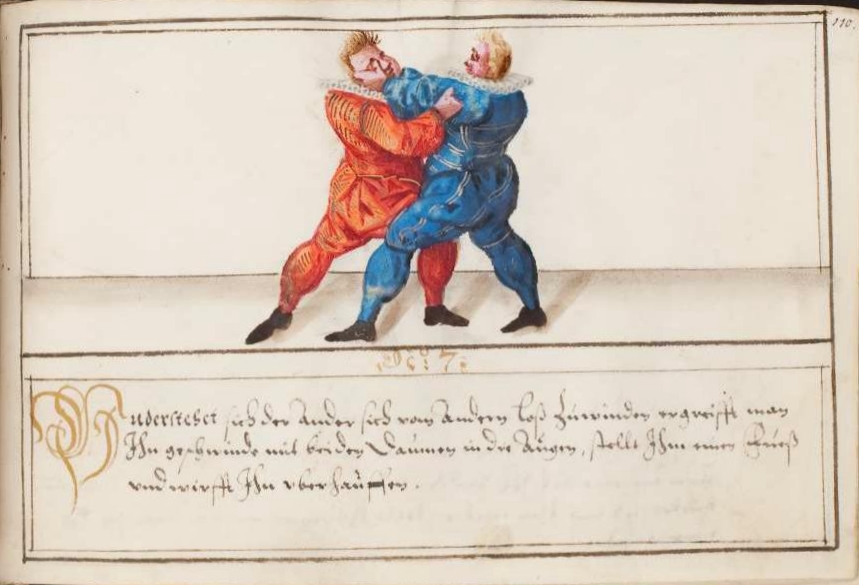 110.
Vnderstehet sich der Ander sich vom Andern loß zuwinden ergreifft man
Ihn geschwinde mit beiden Daumen in die Augen, stellt Ihm einen Fueß
vnd wirfft Ihn vberhauffen.